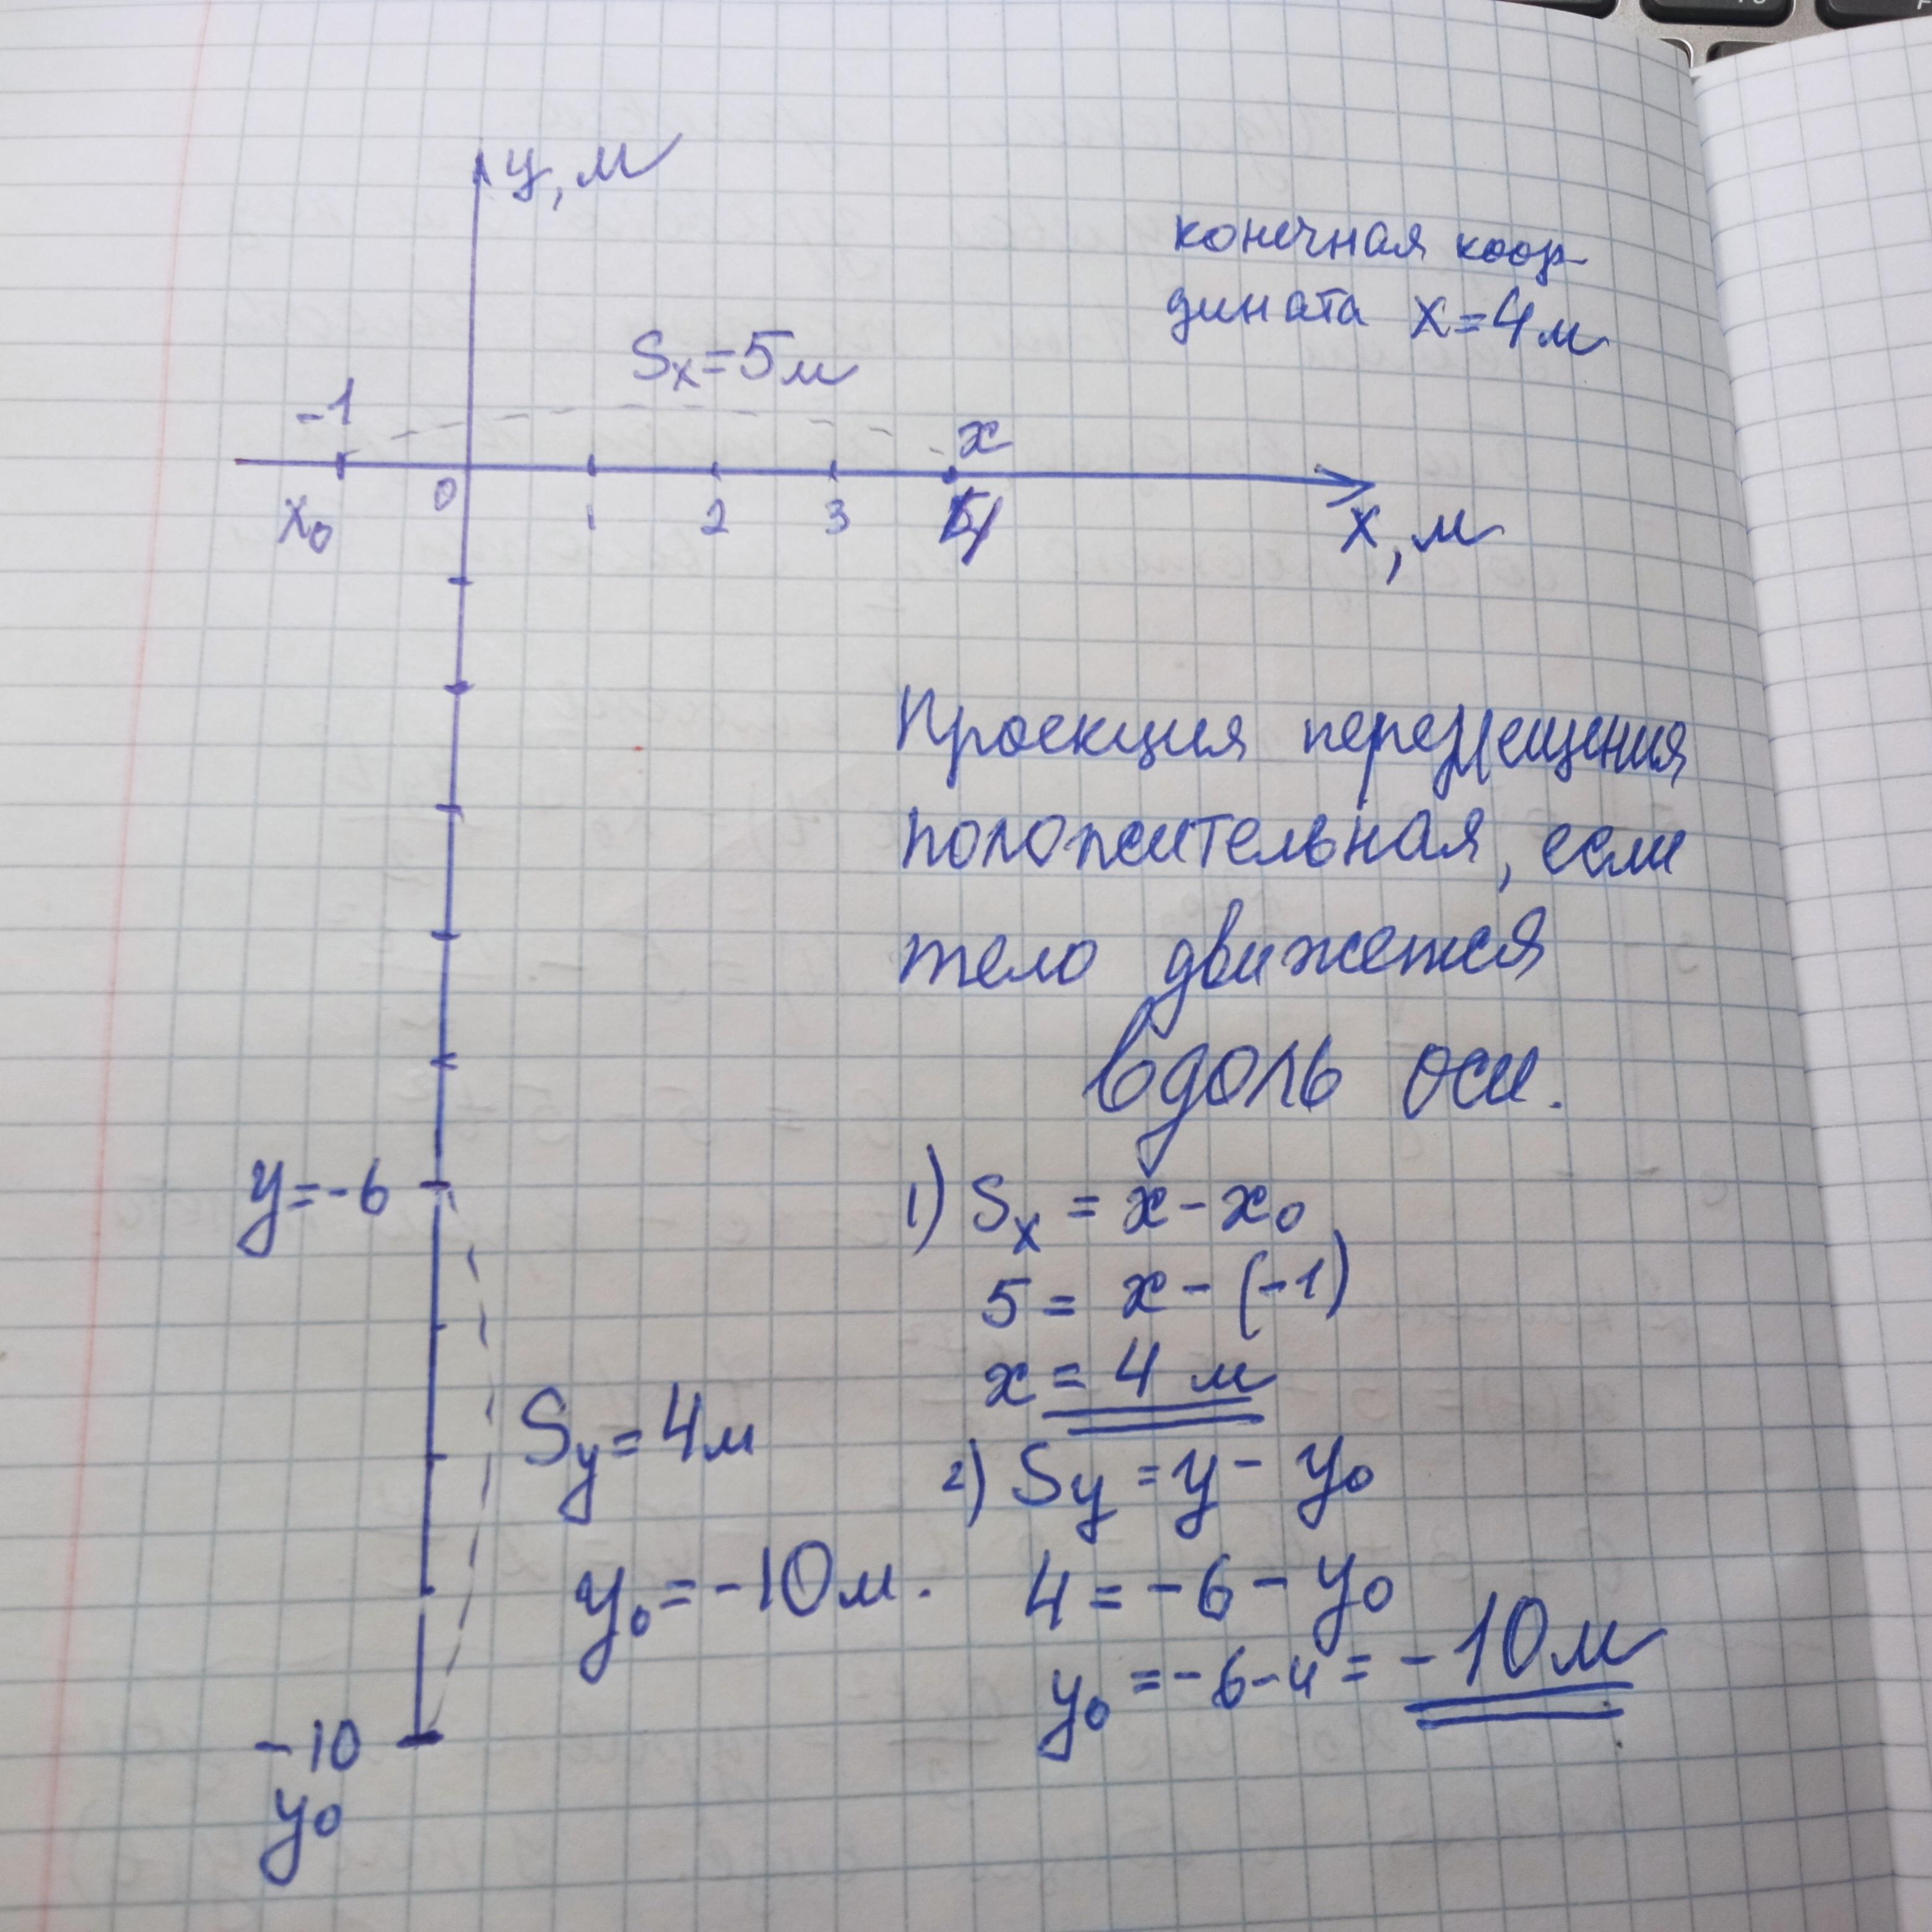 y, м
конечная коор-
дината x=4м
Sx=5м
-1
x
x₀
0
1
2
3
4
x, м
Проекция перемещения
положительная, если
тело движется
вдоль оси.
y=-6
1) Sx = x - x₀
5 = x - (-1)
x = 4 м
Sy = 4м
2) Sy = y - y₀
y₀ = -10м.
4 = -6 - y₀
y₀ = -6-4 = -10м
-10
y₀